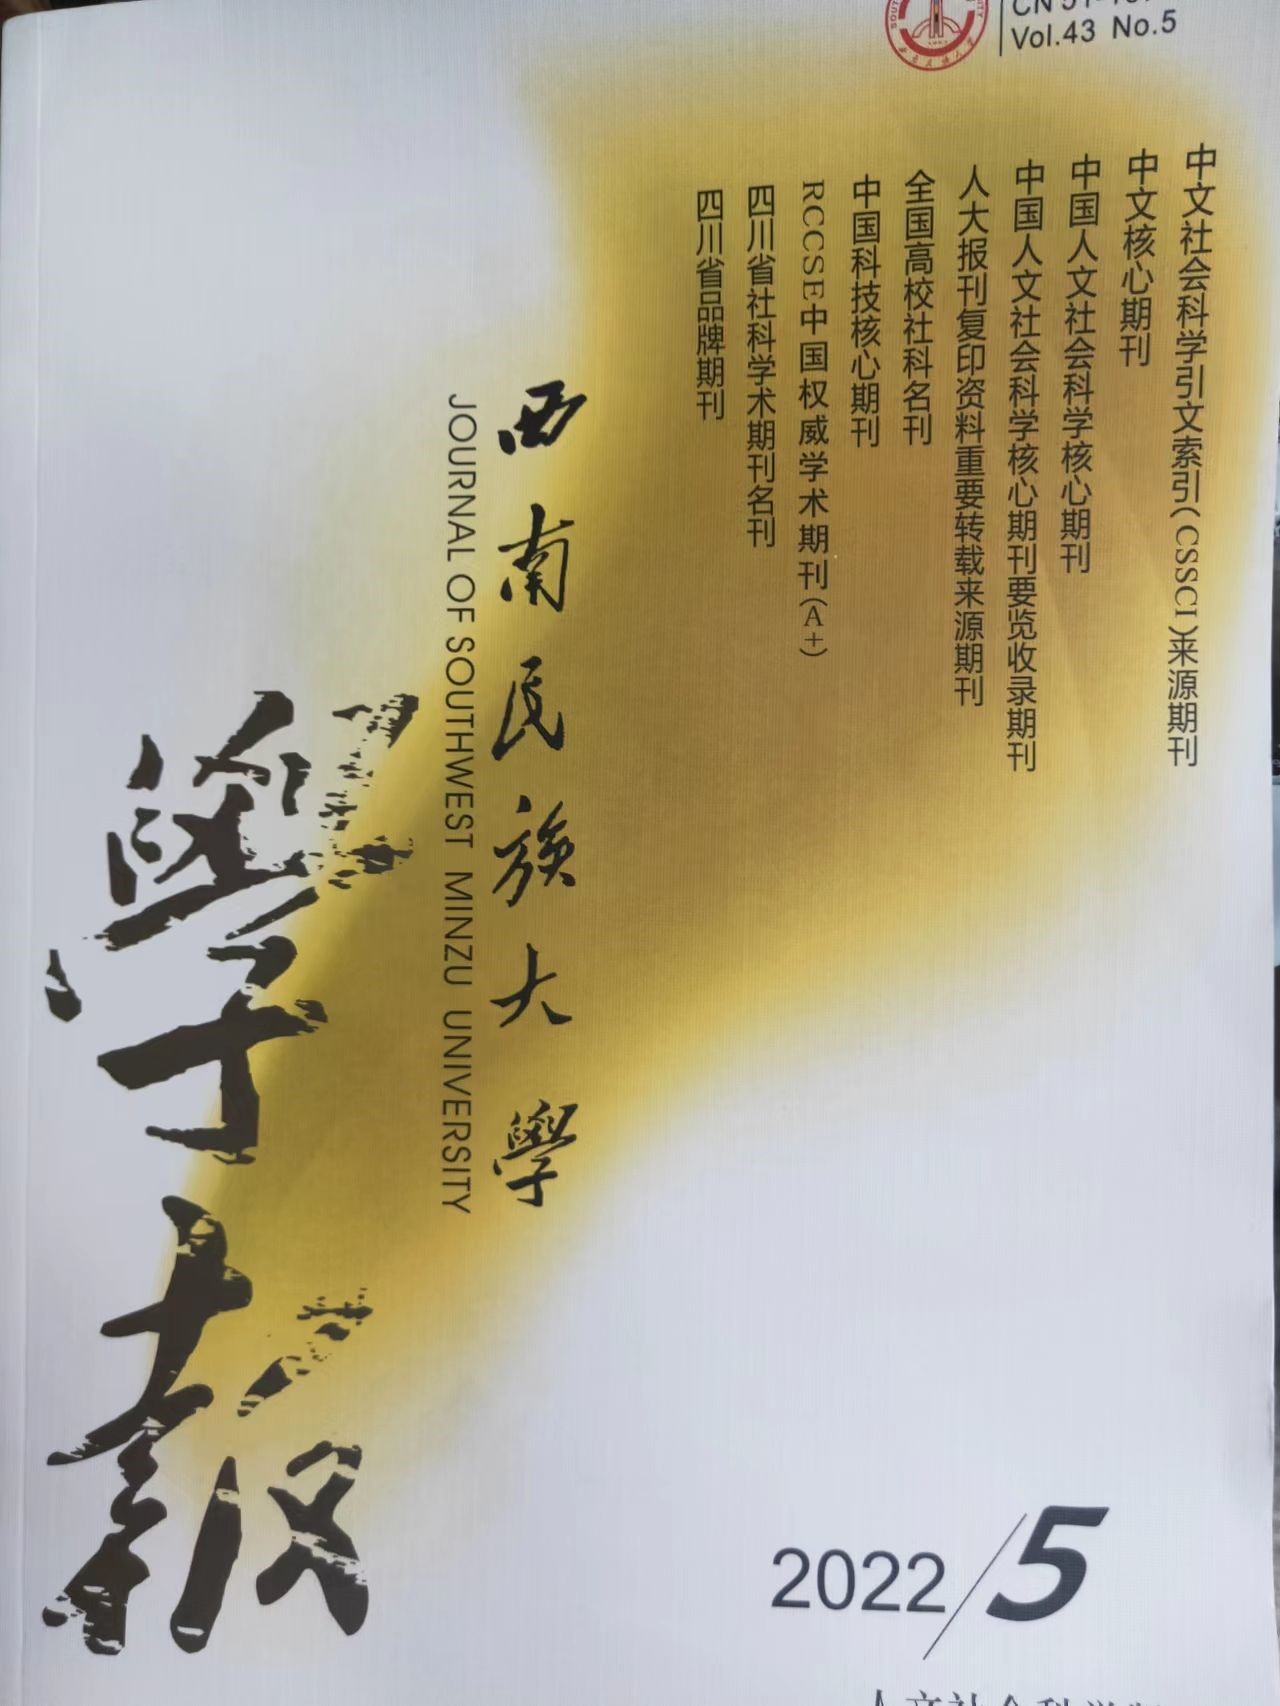 Vol.43 No.5
中文社会科学引文索引(CSSCI)来源期刊
中文核心期刊
中国人文社会科学核心期刊
中国人文社会科学核心期刊要览收录期刊
人大报刊复印资料重要转载来源期刊
全国高校社科名刊
中国科技核心期刊
RCCSE中国权威学术期刊(A+)
四川省社科学术期刊名刊
四川省品牌期刊
西南民族大學
JOURNAL OF SOUTHWEST MINZU UNIVERSITY
學报
2022/5